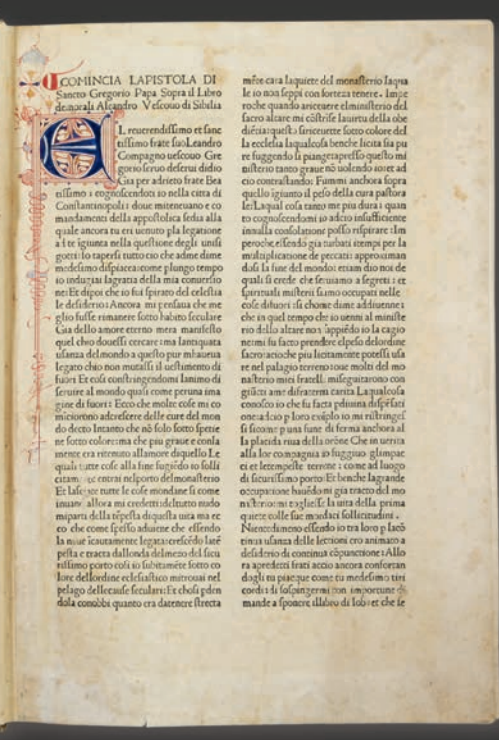 COMINCIA LAPISTOLA DI
Sancto Gregorio Papa Sopra il Libro
demorali Aleandro Vescouo di Sibilia
L reuerendissimo et sanc
tissimo frate suo Leandro
Compagno uescouo Gre
gorio seruo deserui didio
Gia per adrieto frate Bea
tissimo cognoscendoti io nella citta di
Constantinopoli: doue miteneuano e co
mandamenti della appostolica sedia alla
quale ancora tu eri uenuto pla legatione
a te igiunta nella questione degli uisi
gotti: Io tapersi tutto cio che adme dime
medesimo dispiacea: come plungo tempo
io indugiai lagratia della mia conuersio
ne: Et dipoi che io fui spirato del celestia
le desiderio: Ancora mi pensaua che me
glio fusse rimanere sotto habito seculare
Gia dello amore eterno mera manifesto
quel chio douessi cercare: ma lantiquata
usanza delmondo a questo pur mhaueua
legato chio non mutassi il uestimento di
fuori Et cosi constringendomi lanimo di
seruire al mundo quasi come peruna ima
gine di fuori: Ecco che molte cose mi co
minciorono adcrescere delle cure del mon
do decto Intanto che nō solo sotto spetie
ne sotto colore: ma che piu graue e conla
mente era ritenuto allamore diquello Le
quali tutte cose alla fine fugiēdo io solli
citamente entrai nelporto delmonasterio
Et lasciate tutte le cose mondane si come
inuano allora mi credetti: deltutto nudo
miparti della tēpesta diquesta uita ma ec
co che come spesso aduiene che essendo
la naue icautamente legata: crescēdo latē
pesta e tracta dallonda delmezo del sicu
rissimo porto cosi io subitamēte sotto co
lore dellordine eclesiastico mitrouai nel
pelago dellecause seculari: Et chosi pden
dola conobbi quanto era datenere strecta
mēte cara laquiete del monasterio laqua
le io non seppi con forteza tenere. Impe
roche quando ariceuere elministerio del
sacro altare mi cōstrise lauirtu della obe
diētia: questo siriceuette sotto colore del
la ecclesia laqualcosa benche licita sia pu
re fuggendo si piange: apresso questo mi
nisterio tanto graue nō uolendo io: et ad
cio contrastando: Fummi anchora sopra
quello igiunto il peso della cura pastora
le: Laqual cosa tanto me piu dura: quan
to cognoscendomi io adcio insufficiente
innulla consolatione posso rispirare: Im
peroche essendo gia turbati itempi per la
multiplicatione de peccati: approximan
dosi la fine del mondo: etiam dio noi de
quali si crede che seruiamo a segreti: et
spirituali misterii siamo occupati nelle
cose difuori si chome dame adduienne:
che in quel tempo che io uenni al ministe
rio dello altare non sappiēdo io la cagio
ne: mi fu facto prendere elpeso delordine
sacro: acioche piu licitamente potessi usa
re nel palagio terreno: oue molti del mo
nasterio miei fratelli: miseguitarono con
giūcti ame difraterna carita Laqualcosa
conosco io che fu facta pdiuina dispēsati
one: adcio p loro exēplo io mi ristringes
si sicome p una fune di ferma anchora al
la placida riua della orōne Che in uerita
alla lor compagnia io fuggiuo: glimpac
ci et letempeste terrene: come ad luogo
di sicurissimo porto: Et benche lagrande
occupatione hauēdo mi gia tracto del mo
nasterio: mi togliesse la uita della prima
quiete colle sue mondaci sollicitudini.
Nientedimeno essendo io tra loro p lacō
tinua usanza delle lectioni ero animato a
desiderio di continua cōpunctione: Allo
ra apredetti frati accio ancora confortan
dogli tu piacque come tu medesimo tiri
cordi: di sospingermi con importune di
mande a sponere illibro di Iob: et che se